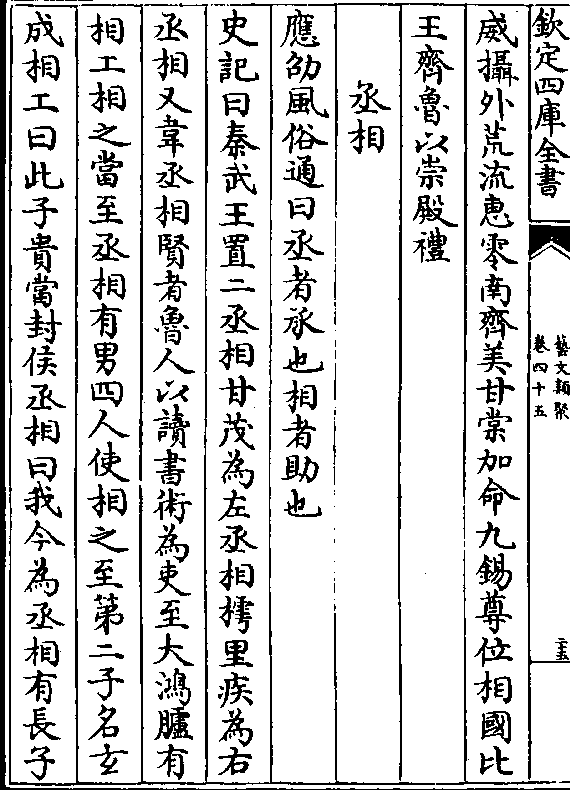 欽定四庫全書
藝文類聚
卷四十五
二五
威攝外荒流惠零南齊美甘棠加命九錫尊位相國比
王齊魯以崇殿禮
丞相
應劭風俗通曰丞者承也相者助也
史記曰秦武王置二丞相甘茂為左丞相樗里疾為右
丞相又韋丞相賢者魯人以讀書術為吏至大鴻臚有
相工相之當至丞相有男四人使相之至第二子名玄
成相工曰此子貴當封侯丞相曰我今為丞相有長子